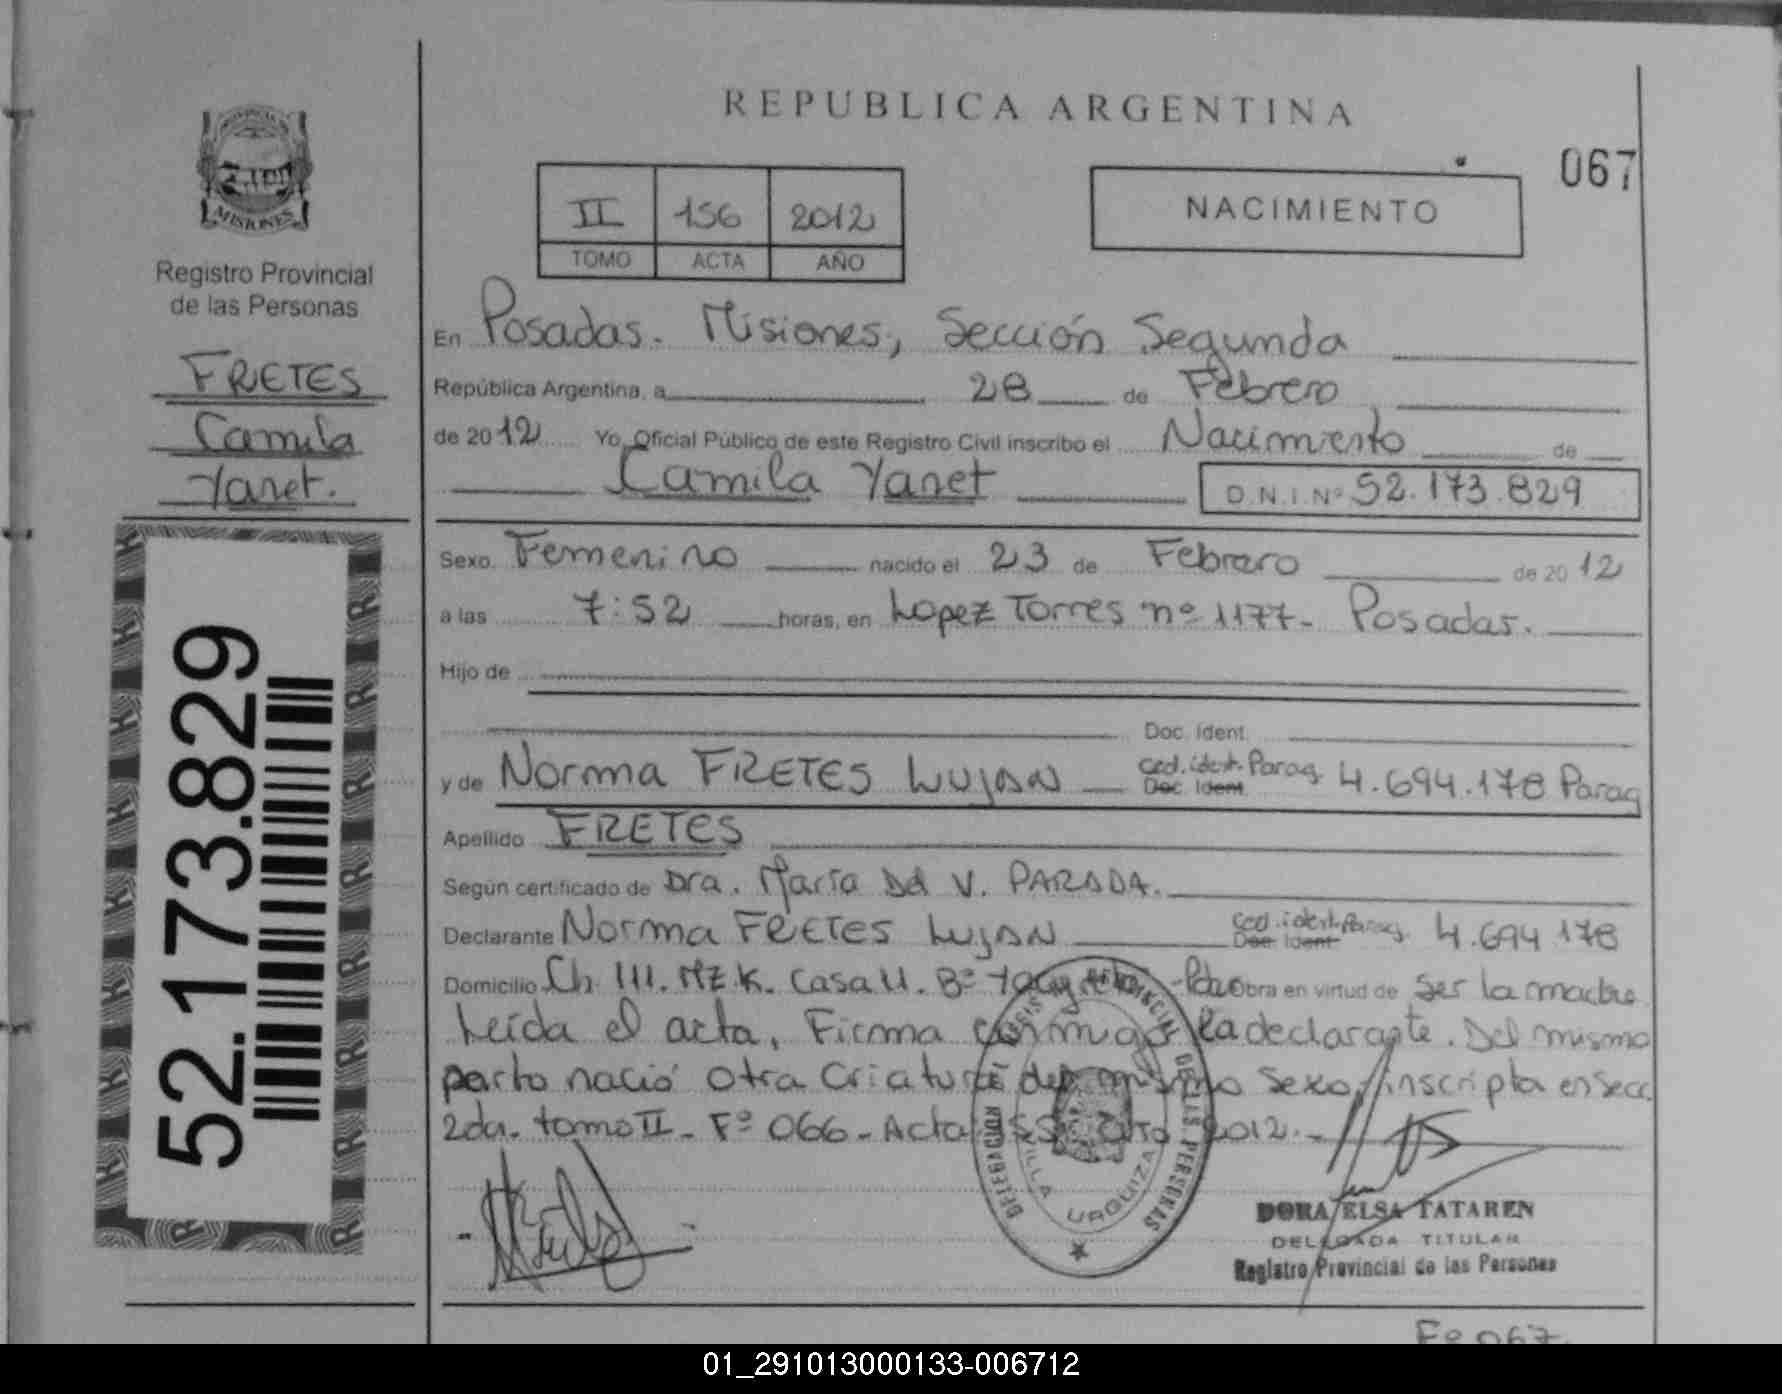 REPUBLICA ARGENTINA
067
II 156 2012
TOMO ACTA AÑO
NACIMIENTO
PROVINCIA DE
MISIONES
Registro Provincial
de las Personas
FRETES
Camila
Yanet.
52.173.829
En Posadas. Misiones, Sección Segunda
República Argentina, a 28 de Febrero
de 2012 Yo, Oficial Público de este Registro Civil inscribo el Nacimiento de
Camila Yanet D.N.I.Nº 52.173.829
Sexo Femenino nacido el 23 de Febrero de 2012
a las 7:52 horas, en Lopez Torres nº 1177- Posadas.
Hijo de
Doc. Ident.
y de Norma FRETES LUJAN Ced. ident. Parag. Doc. Ident 4.694.178 Parag
Apellido FRETES
Según certificado de Dra. María Del V. PARADA.
Declarante Norma FRETES LUJAN Ced. ident. Parag. Doc. Ident 4.694.178
Domicilio Ch. 111. MZ K. Casa 11. Bº obra en virtud de ser la madre
Leída el acta, Firma conmigo la declarante. Del mismo
parto nació otra criatura del mismo sexo, inscripta en Secc.
2da. tomo II - Fº 066 - Acta 155 Año 2012.-
DELEGACION REGISTRO PROVINCIAL DE LAS PERSONAS
VILLA URQUIZA
DORA ELSA TATAREN
DELEGADA TITULAR
Registro Provincial de las Personas
Fº 067.
01_291013000133-006712